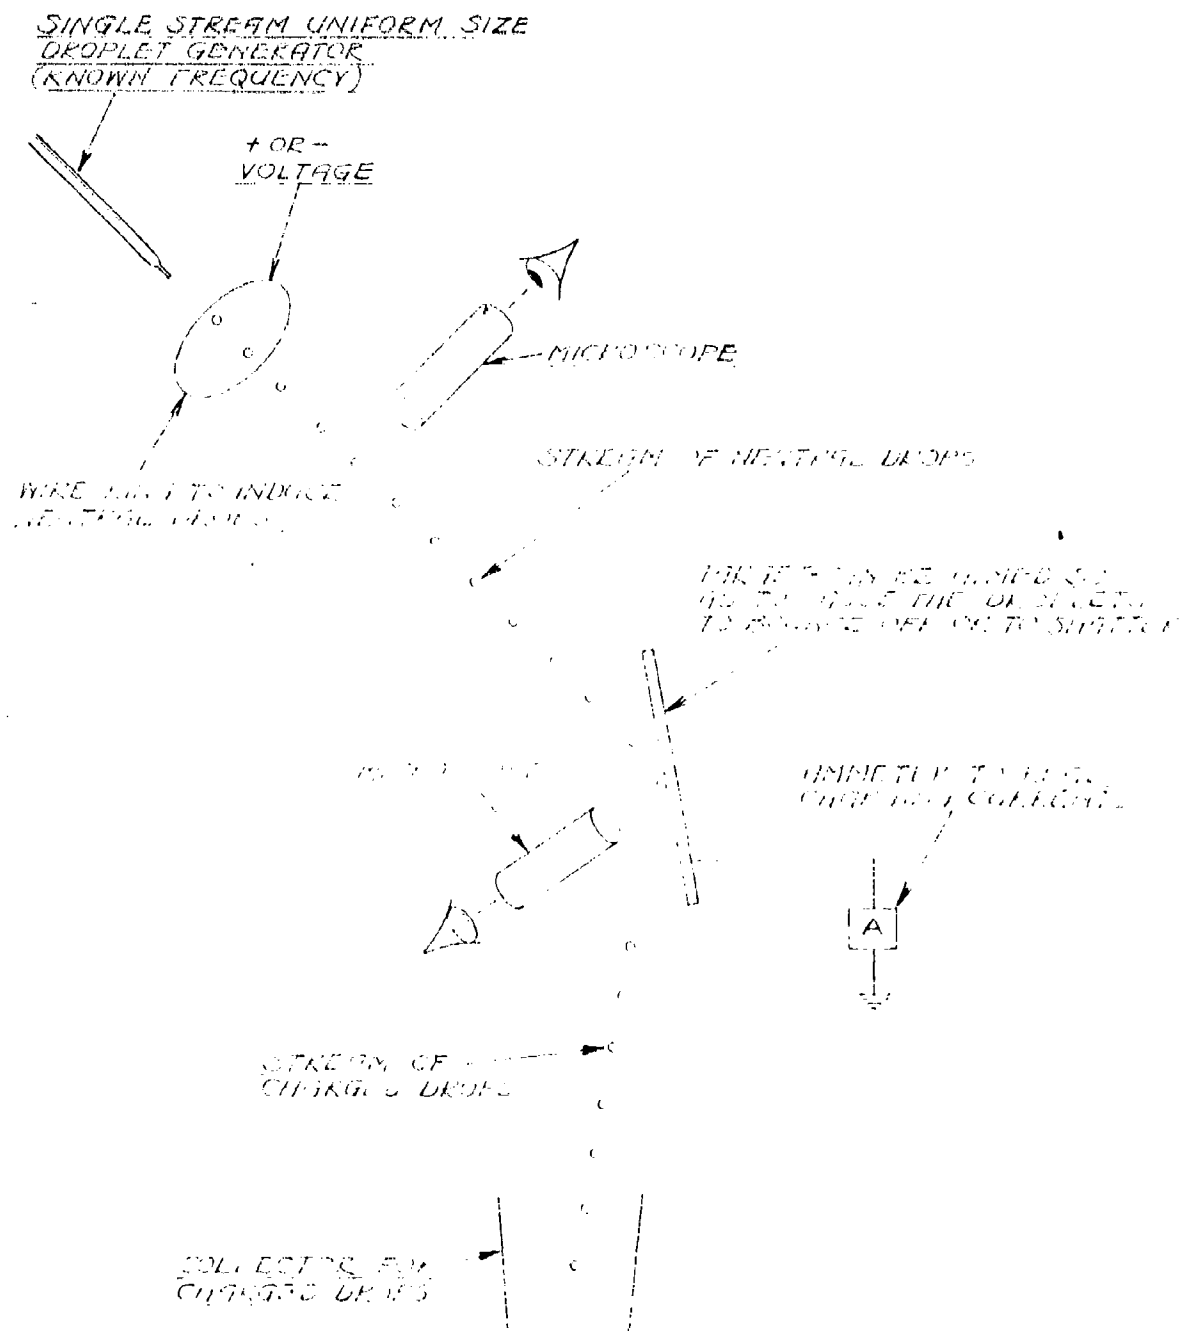 SINGLE STREAM UNIFORM SIZE
DROPLET GENERATOR
(KNOWN FREQUENCY)
+ OR -
VOLTAGE
MICROSCOPE
STREAM OF NEUTRAL DROPS
WIRE TO INDUCE
NEUTRAL
THE DROPLETS
TO BOUNCE OFF OR TO SHATTER
AMMETER TO
CHARGING CURRENT
A
STREAM OF
CHARGED DROPS
COLLECTOR FOR
CHARGED DROPS